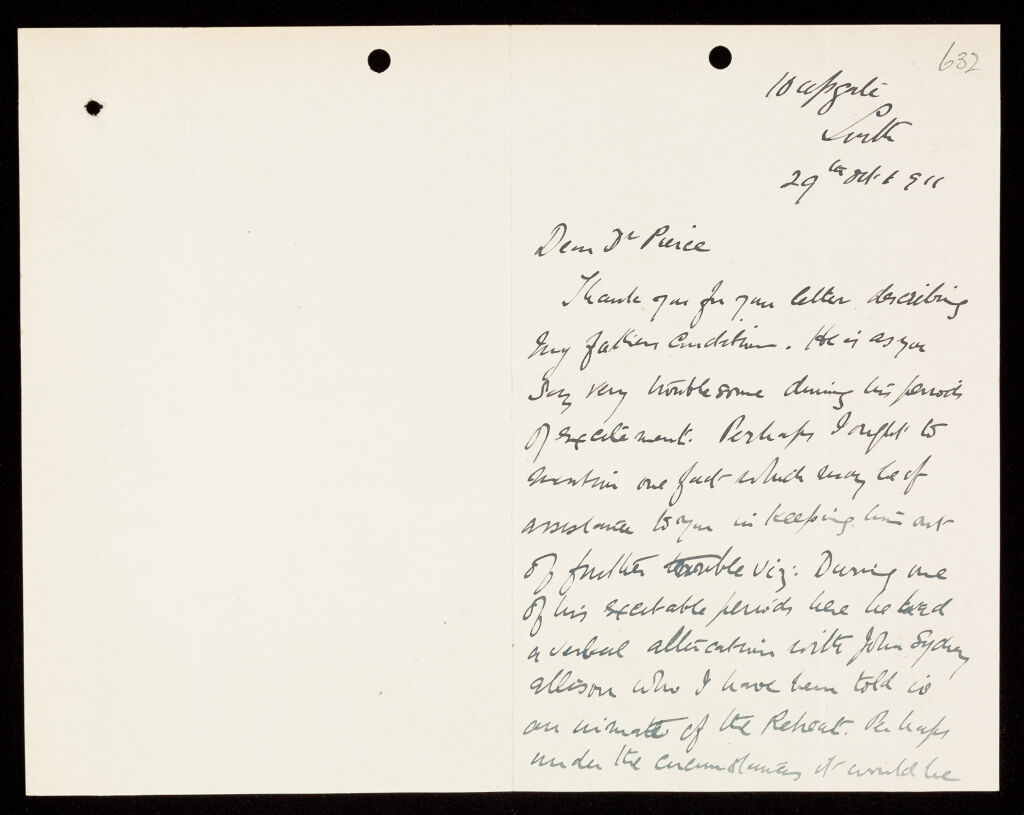 632
10 Upgate
Louth
29th Oct 1911
Dear Dr Pierce
Thank you for your letter describing
my fathers condition. He is as you
say very troublesome during his periods
of excitement. Perhaps I ought to
mention one fact which may be of
assistance to you in keeping him out
of further trouble viz: During one
of his excitable periods here he had
a verbal altercation with John Sydney
Allison who I have been told is
an inmate of the Retreat. Perhaps
under the circumstances it would be